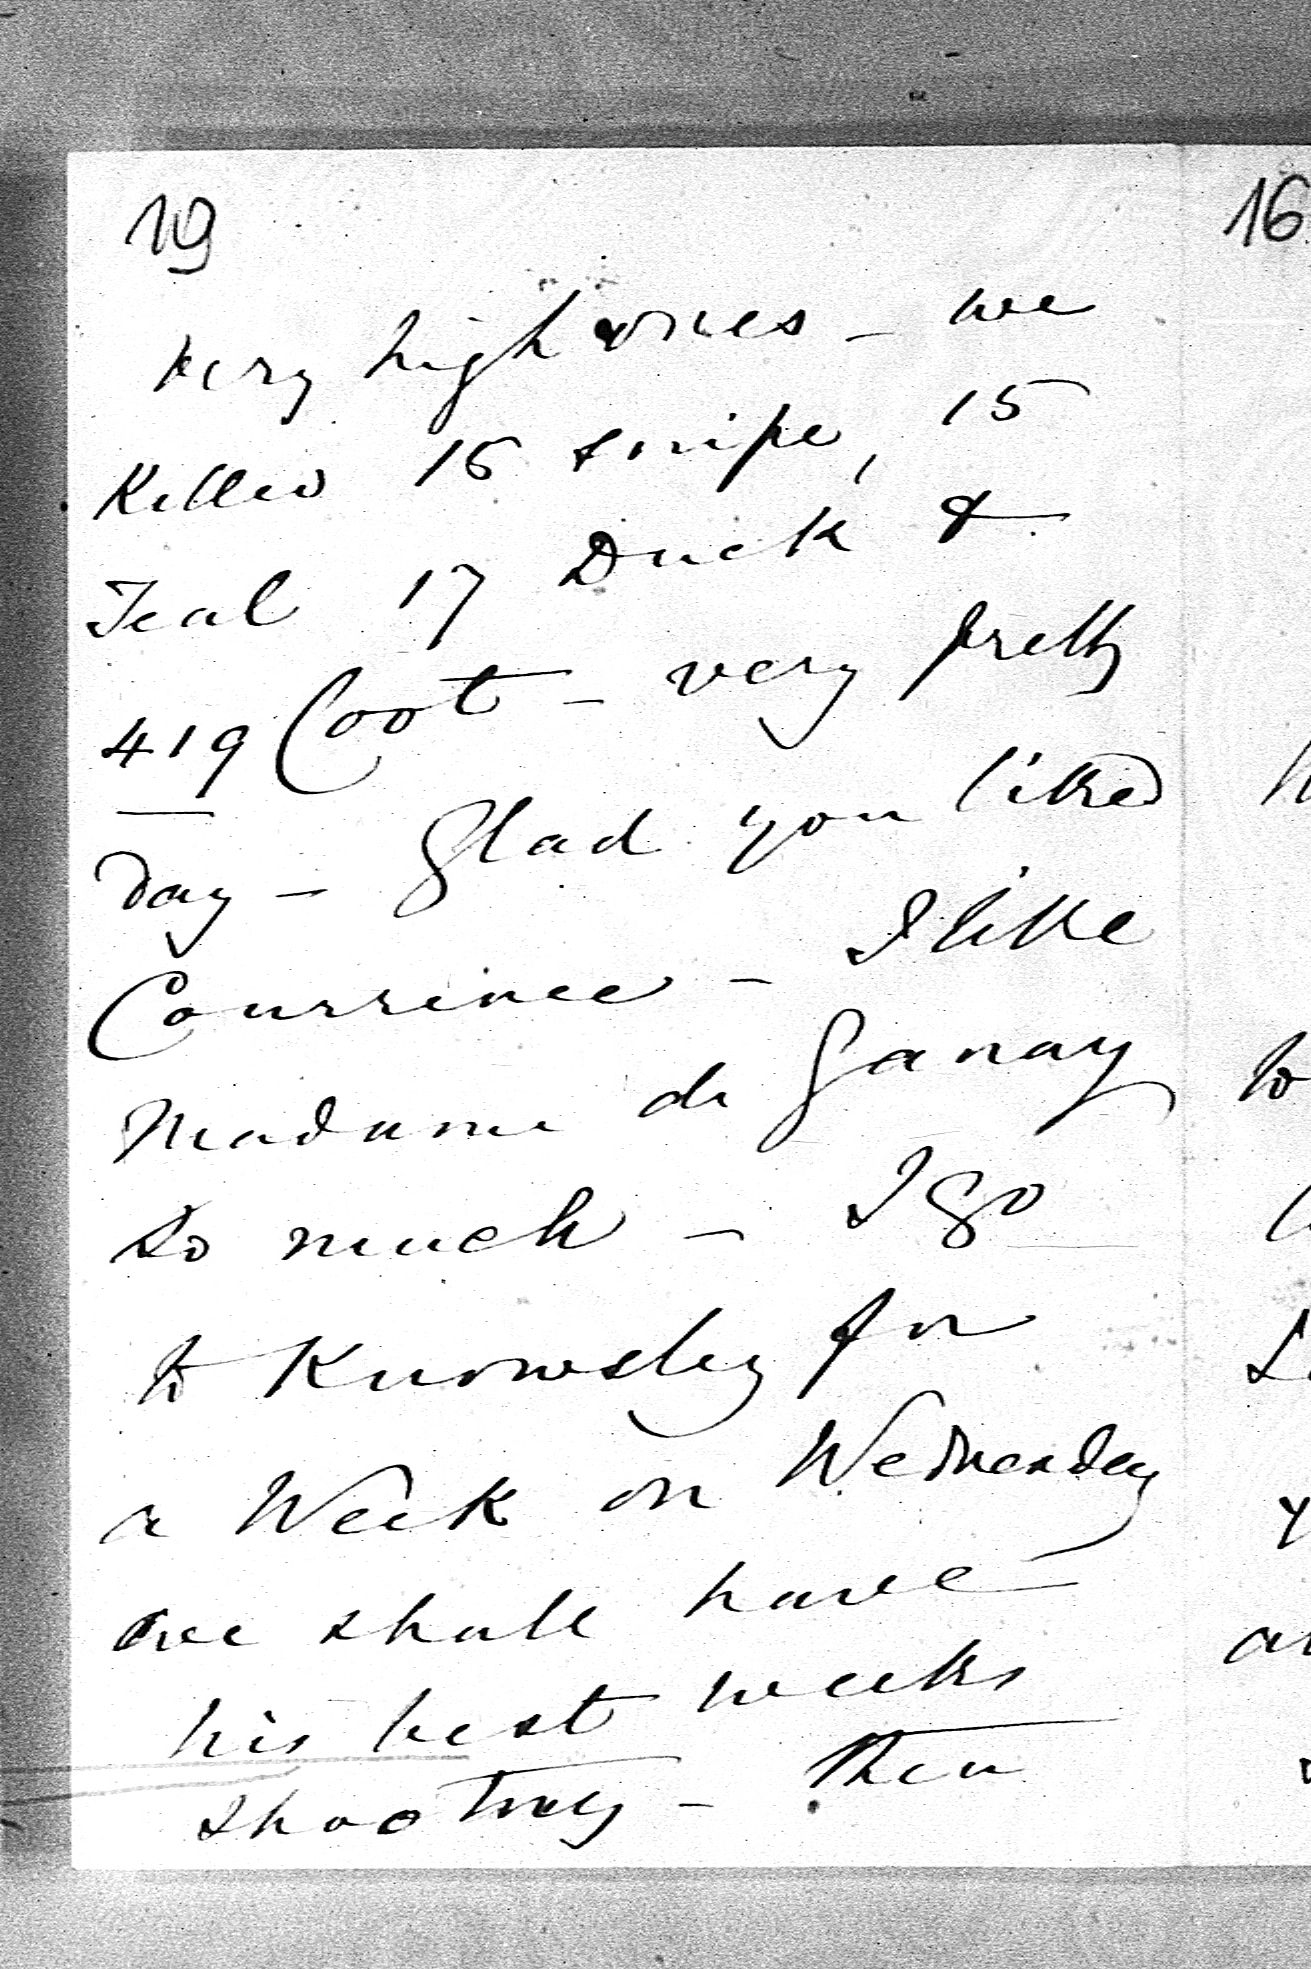 19
very high ones - we
Killed 16 snipe, 15
Teal 17 Duck &
419 Coot - very pretty
Day - Glad you liked
Courrence - I like
Madame de Ganay
so much - I go
to Knowsley for
a Week on Wednesday
we shall have
his best weeks
shooting - Then
16